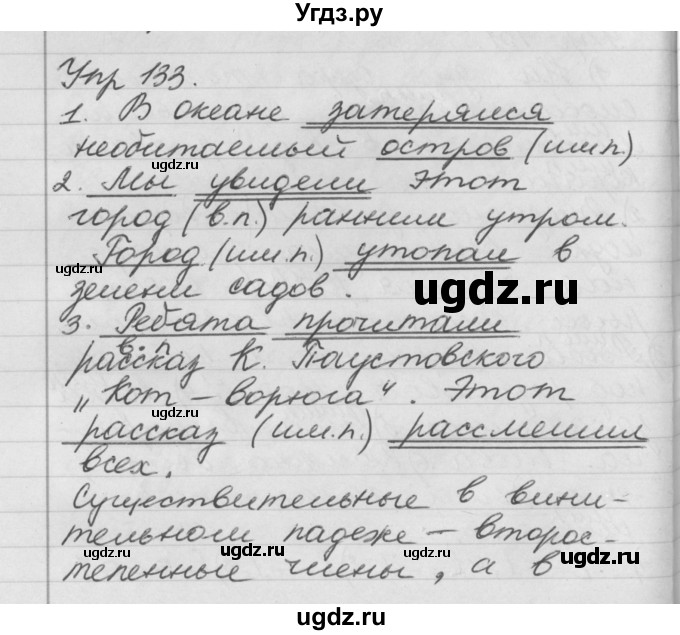 Угдз.ру
Упр 133.
1. В океане затерялся
необитаемый остров (им.п.)
ugdz.ru ugdz.ru
2. Мы увидели этот
город (в.п.) ранним утром.
Город (им.п.) утопал в
ugdz.ru ugdz.ru
зелени садов.
ugdz.ru
3. Ребята прочитали
в. п.
рассказ К. Паустовского
ugdz.ru
„Кот – ворюга“. Этот
рассказ (им.п.) рассмешил
всех.
Существительные в вини-
тельном падеже – второс-
ugdz.ru ugdz.ru ugdz.ru
тепенные члены, а в
ugdz.ru